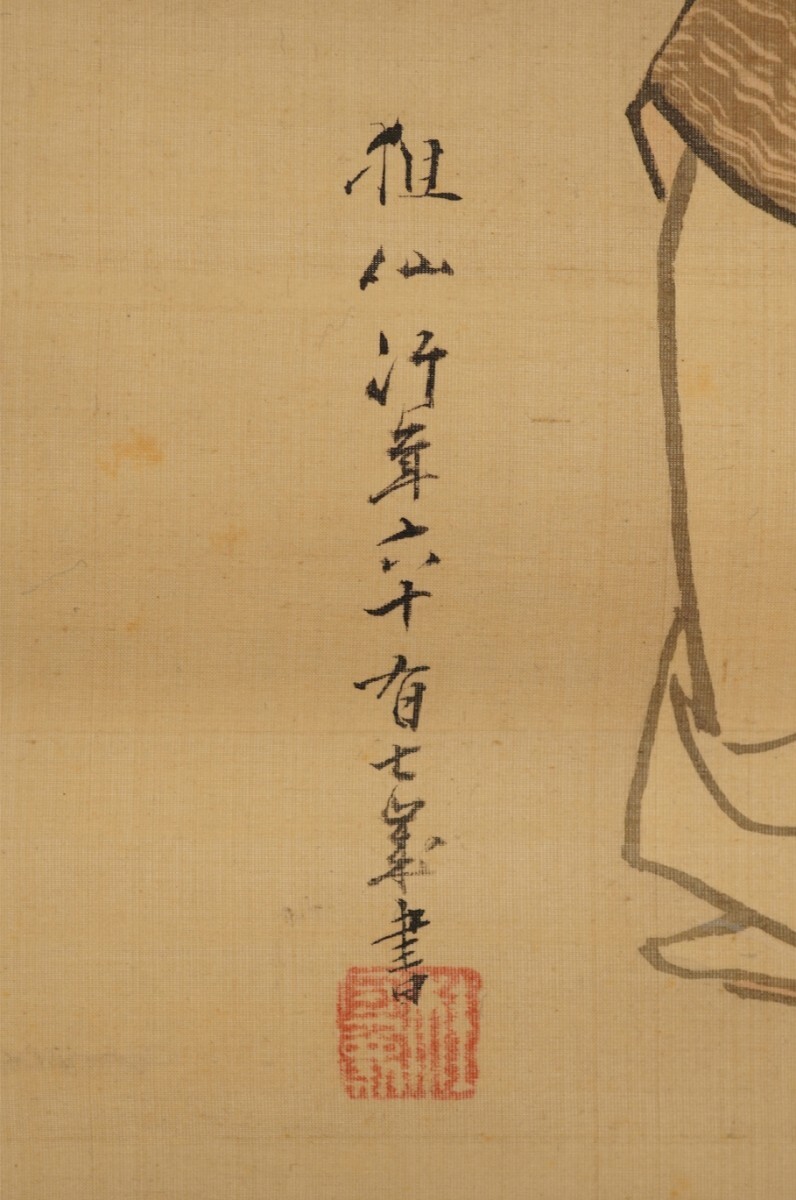 狙仙行年六十有七歳書